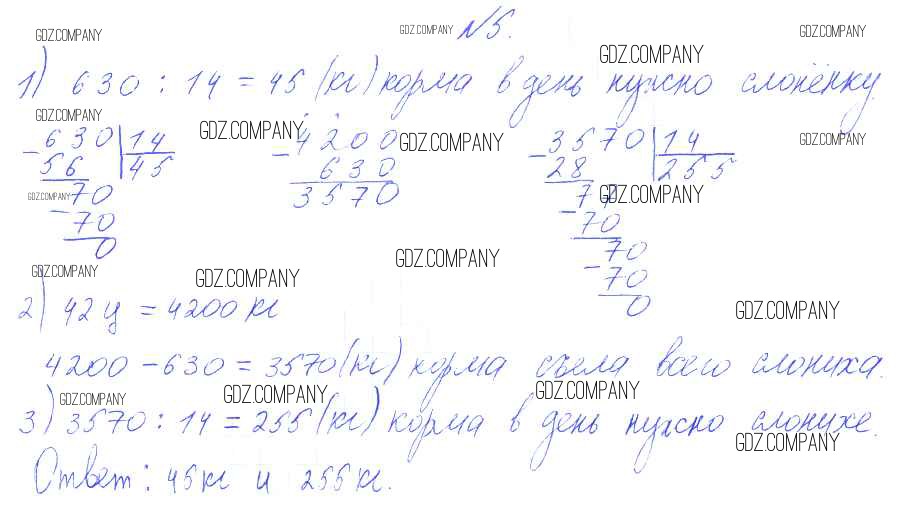 GDZ.COMPANY GDZ.COMPANY №5. GDZ.COMPANY
GDZ.COMPANY
1) 630 : 14 = 45 (кг) корма в день нужно слонёнку.
GDZ.COMPANY GDZ.COMPANY GDZ.COMPANY GDZ.COMPANY
630 | 14
- 56 | 45
70
- 70
0
4200
- 630
3570
3570 | 14
- 28 | 255
77
- 70
70
- 70
0
GDZ.COMPANY GDZ.COMPANY
GDZ.COMPANY GDZ.COMPANY GDZ.COMPANY
2) 42 ц = 4200 кг
GDZ.COMPANY
4200 - 630 = 3570 (кг) корма съела всего слониха.
GDZ.COMPANY GDZ.COMPANY GDZ.COMPANY
3) 3570 : 14 = 255 (кг) корма в день нужно слонихе.
GDZ.COMPANY
Ответ: 45 кг и 255 кг.